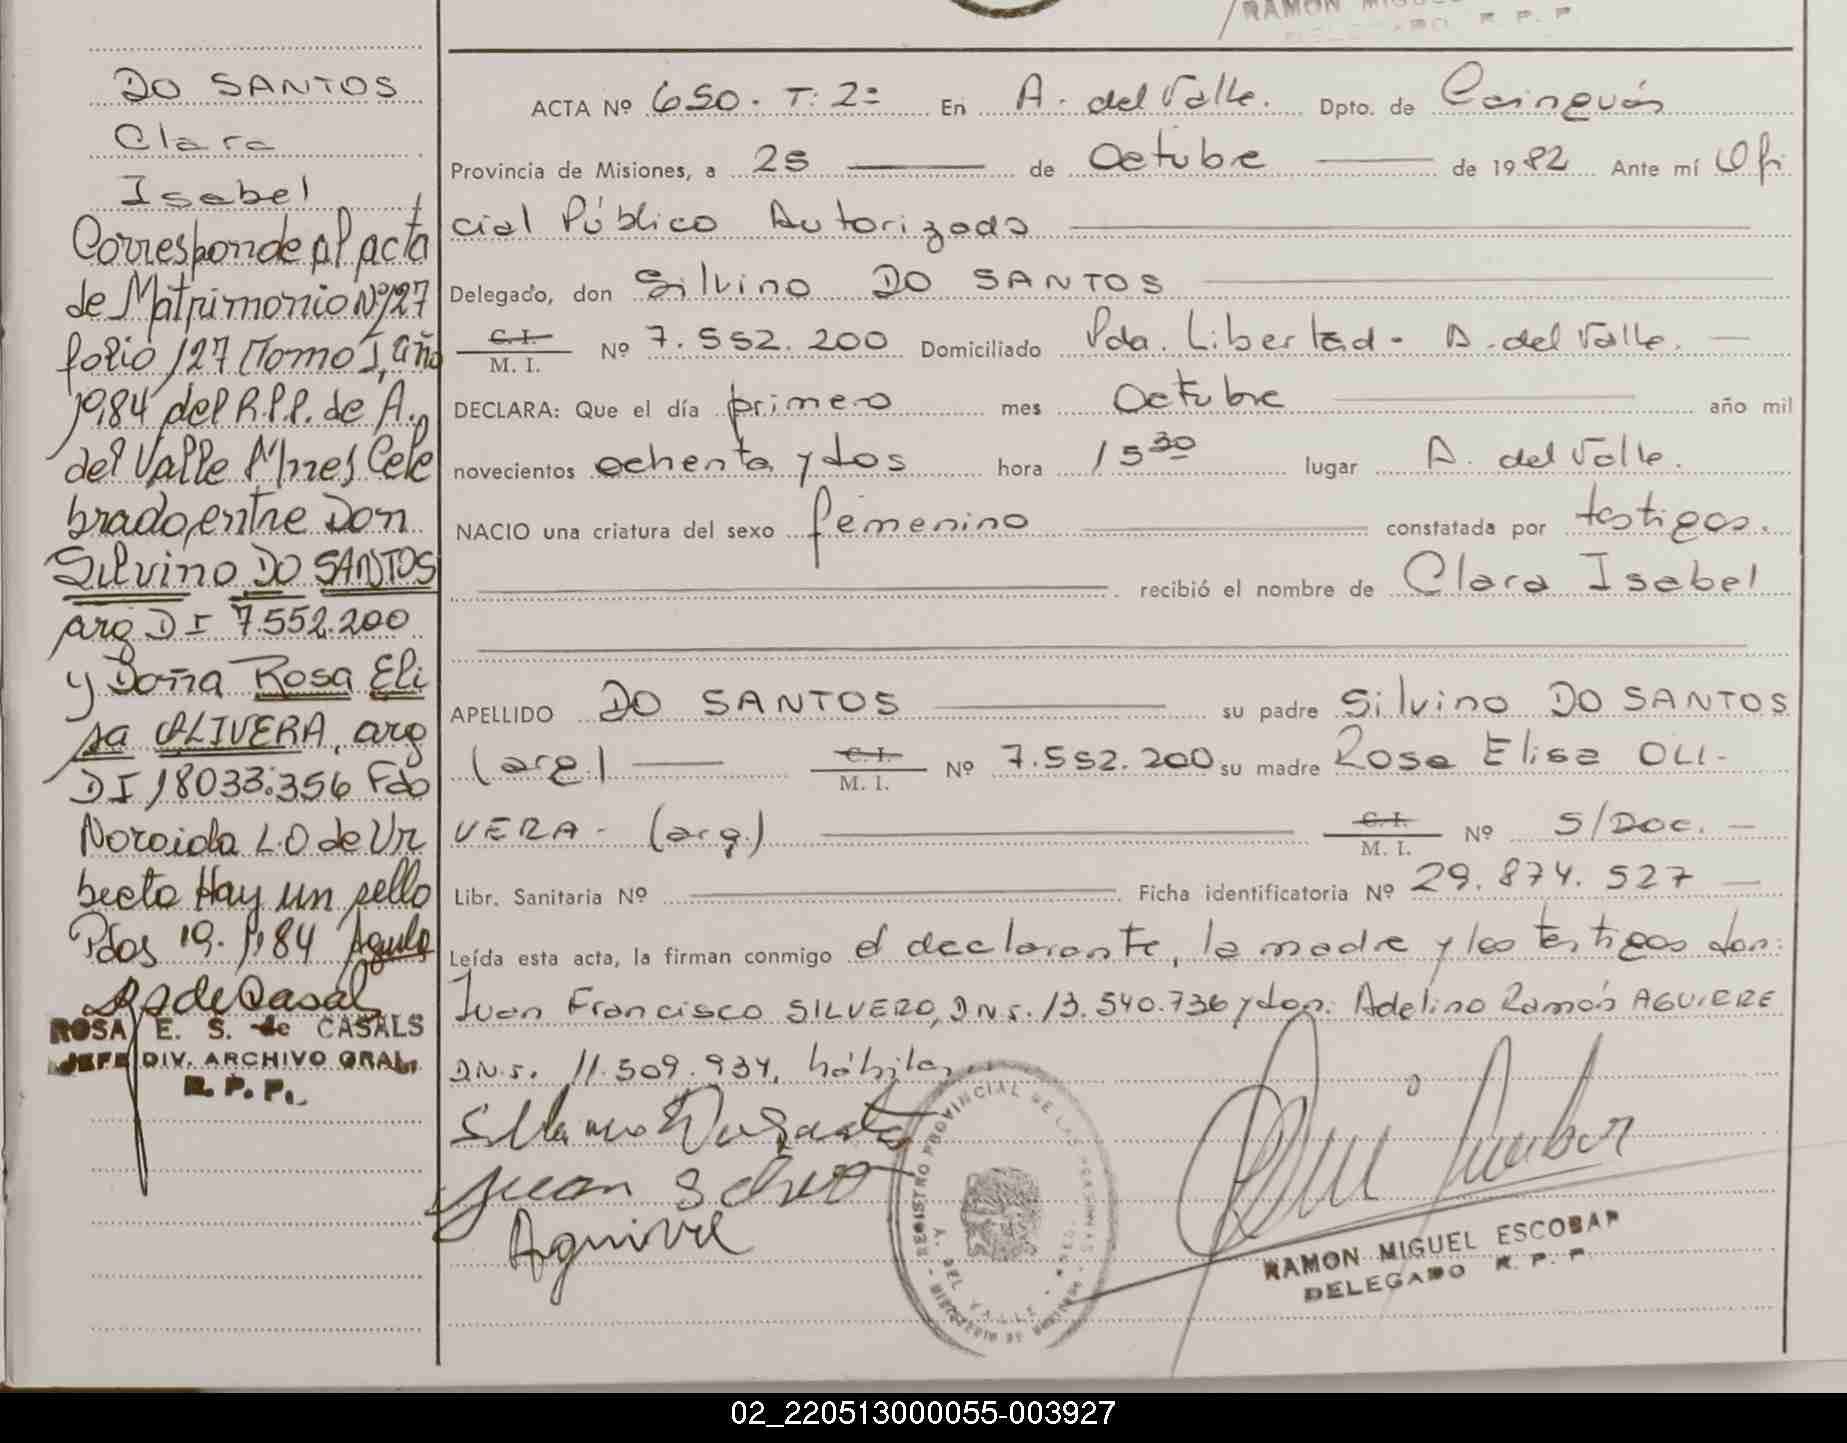 DO SANTOS
Clara
Isabel
Corresponde al acta
de Matrimonio Nº 127
folio 127 Tomo I, año
1984 del R.P.P. de A.
del Valle Mnes Cele
brado, entre Don
Silvino DO SANTOS
arg D I 7.552.200
y Doña Rosa Eli
sa OLIVERA, arg
D I 18033.356 Fdo
L.O de Ur
Hay un sello
Pdos 19. 84
ROSA E. S. de CASALS
JEFE DIV. ARCHIVO GRAL.
R. P. P.
RAMON
ACTA Nº 650. T: 2º En A. del Valle. Dpto. de Cainguás
Provincia de Misiones, a 25 de Octubre de 1982 Ante mí Ofi
cial Público Autorizado
Delegado, don Silvino DO SANTOS
C. I.
M. I. Nº 7.552.200 Domiciliado Pda. Libertad - A. del Valle.
DECLARA: Que el día primero mes Octubre año mil
novecientos ochenta y dos hora 15 30 lugar A. del Valle.
NACIO una criatura del sexo femenino constatada por testigos.
recibió el nombre de Clara Isabel
APELLIDO DO SANTOS su padre Silvino DO SANTOS
(arg) C. I. M. I. Nº 7.552.200 su madre Rosa Elisa OLI-
VERA - (arg.) C. I. M. I. Nº S/Doc.
Libr. Sanitaria Nº Ficha identificatoria Nº 29.874.527
Leída esta acta, la firman conmigo el declarante, la madre y los testigos don:
Juan Francisco SILVERO, D.N.I. 13.540.736 y don: Adelino Ramón AGUIRRE
D.N.I. 11.509.934, hábiles.
Juan
Aguirre
REGISTRO PROVINCIAL DE LAS PERSONAS
A. DEL VALLE
MINISTERIO DE GOBIERNO
RAMON MIGUEL ESCOBAR
DELEGADO R. P. P.
02_220513000055-003927